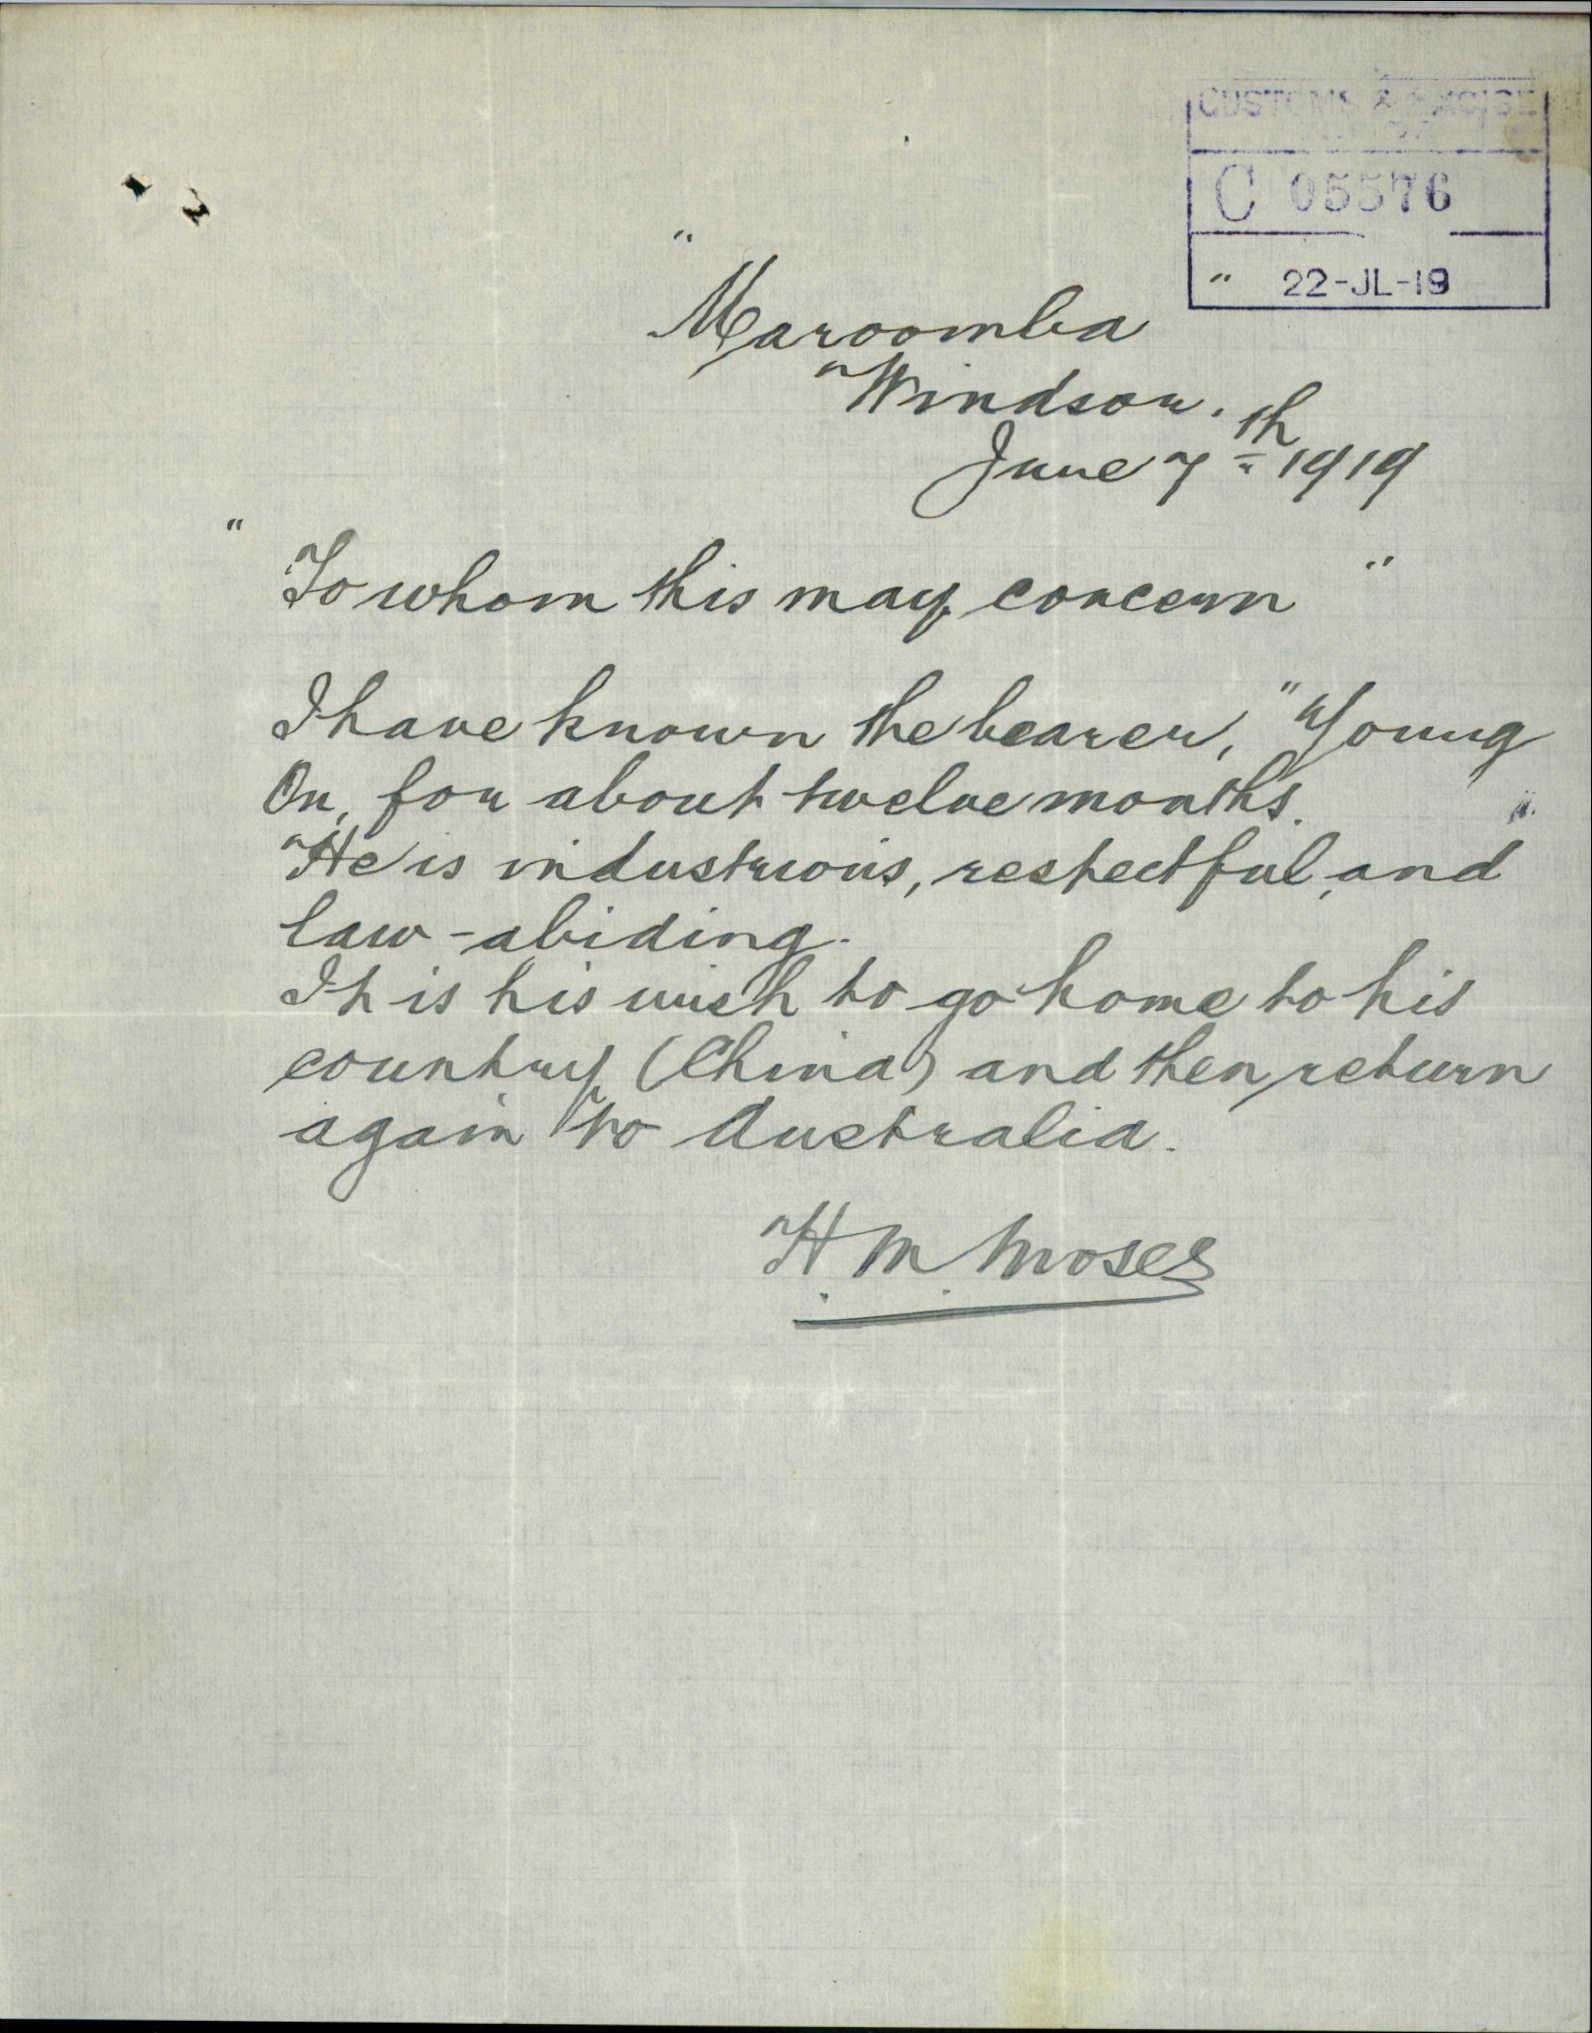 CUSTOMS & EXCISE
C 05576
22-JL-19
"Maroomba"
Windsor.
June 7th 1919
"To whom this may concern"
I have known the bearer, "Young
On, for about twelve months.
He is industrious, respectful, and
law-abiding.
It is his wish to go home to his
country (China) and then return
again to Australia.
H. M. Moses